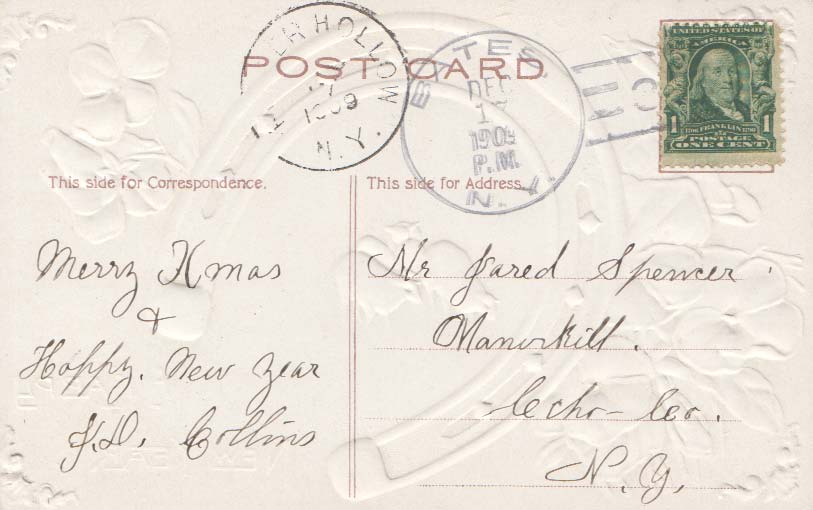 POST CARD
HOLLOW
1909
N.Y.
BATES
DEC
1909
P.M.
N.Y.
UNITED STATES OF
AMERICA
1 FRANKLIN 1
POSTAGE
ONE CENT
This side for Correspondence.
This side for Address.
Merry Xmas
&
Happy. New Year
J.D. Collins
Mr Jared Spencer
Manorkill.
Scho- Co.
N.Y,